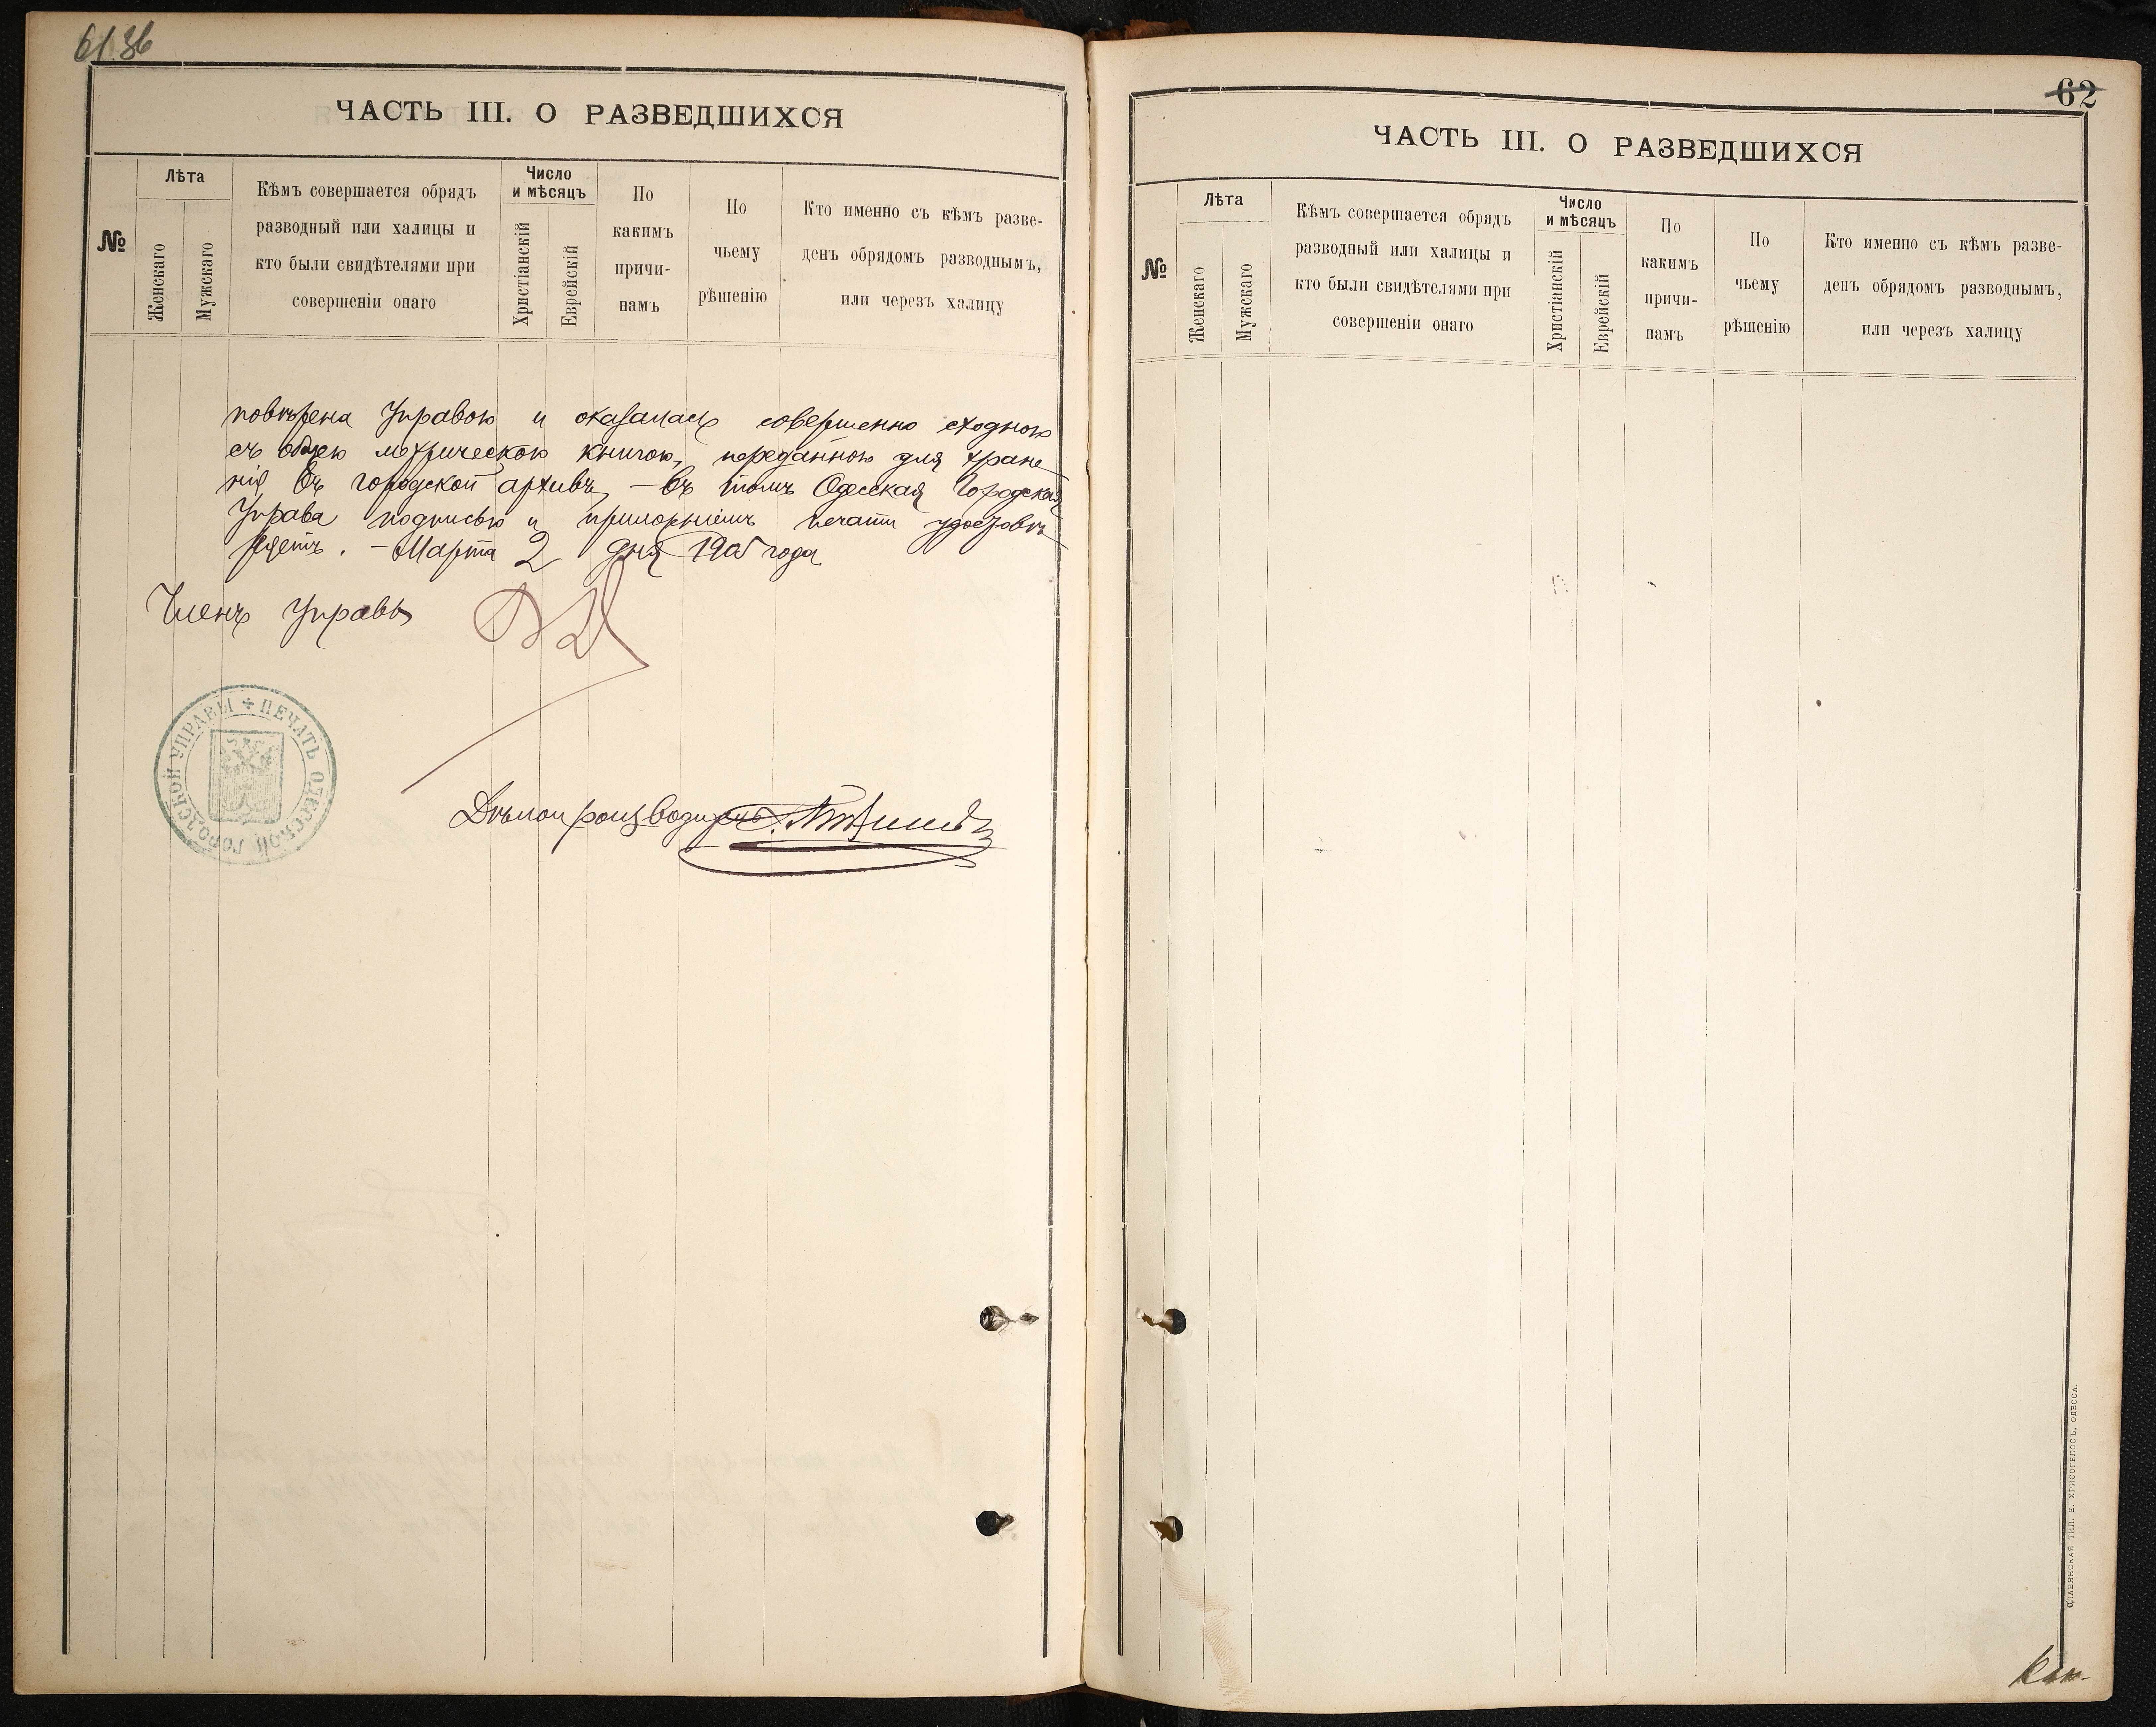 61.36
ЧАСТЬ III. О РАЗВЕДШИХСЯ
№
Лѣта
Женскаго
Мужскаго
Кѣмъ совершается обрядъ
разводный или халицы и
кто были свидѣтелями при
совершеніи онаго
Число
и мѣсяцъ
Христіанскій
Еврейскій
По
какимъ
причи-
намъ
По
чьему
рѣшенію
Кто именно съ кѣмъ разве-
денъ обрядомъ разводнымъ,
или черезъ халицу
повѣрена Управою и оказалась совершенно сходною
съ общею метрическою книгою, переданною для хране
нія въ городской архивъ, – въ томъ Одесская Городская
Управа подписью и приложеніемъ печати удостовѣ
ряетъ. – Марта 2 дня 1905 года
Членъ Управы
ПЕЧАТЬ ОДЕССКОЙ ГОРОДСКОЙ УПРАВЫ
Дѣлопроизводитель
62
ЧАСТЬ III. О РАЗВЕДШИХСЯ
№
Лѣта
Женскаго
Мужскаго
Кѣмъ совершается обрядъ
разводный или халицы и
кто были свидѣтелями при
совершеніи онаго
Число
и мѣсяцъ
Христіанскій
Еврейскій
По
какимъ
причи-
намъ
По
чьему
рѣшенію
Кто именно съ кѣмъ разве-
денъ обрядомъ разводнымъ,
или черезъ халицу
СЛАВЯНСКАЯ ТИП. Е. ХРИСОГЕЛОСЪ, ОДЕССА.